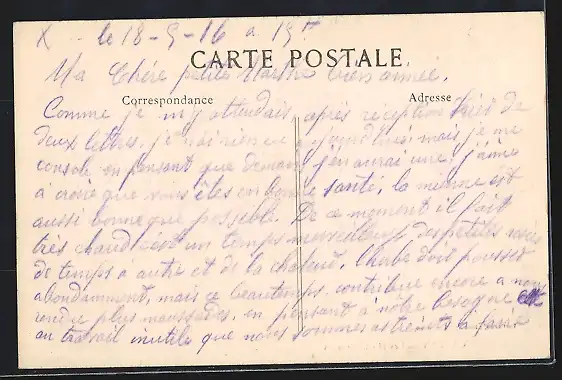 X le 18-9-16 à 19 h
CARTE POSTALE
Ma Chère petite Marthe bien aimée.
Correspondance
Adresse
Comme je m'y attendais, après réception hier de
deux lettres, je n'ai rien eu aujourd'hui, mais je me
console en pensant que demain j'en aurai une, j'aime
à croire que vous êtes en bonne santé, la mienne est
aussi bonne que possible. De ce moment il fait
très chaud c'est un temps merveilleux des petites
de temps à autre et de la chaleur. L'herbe doit pousser
abondamment, mais ce beau temps contribue encore à nous
rendre plus maussades, en pensant à nôtre besogne et
au travail inutile que nous sommes astreints à faire